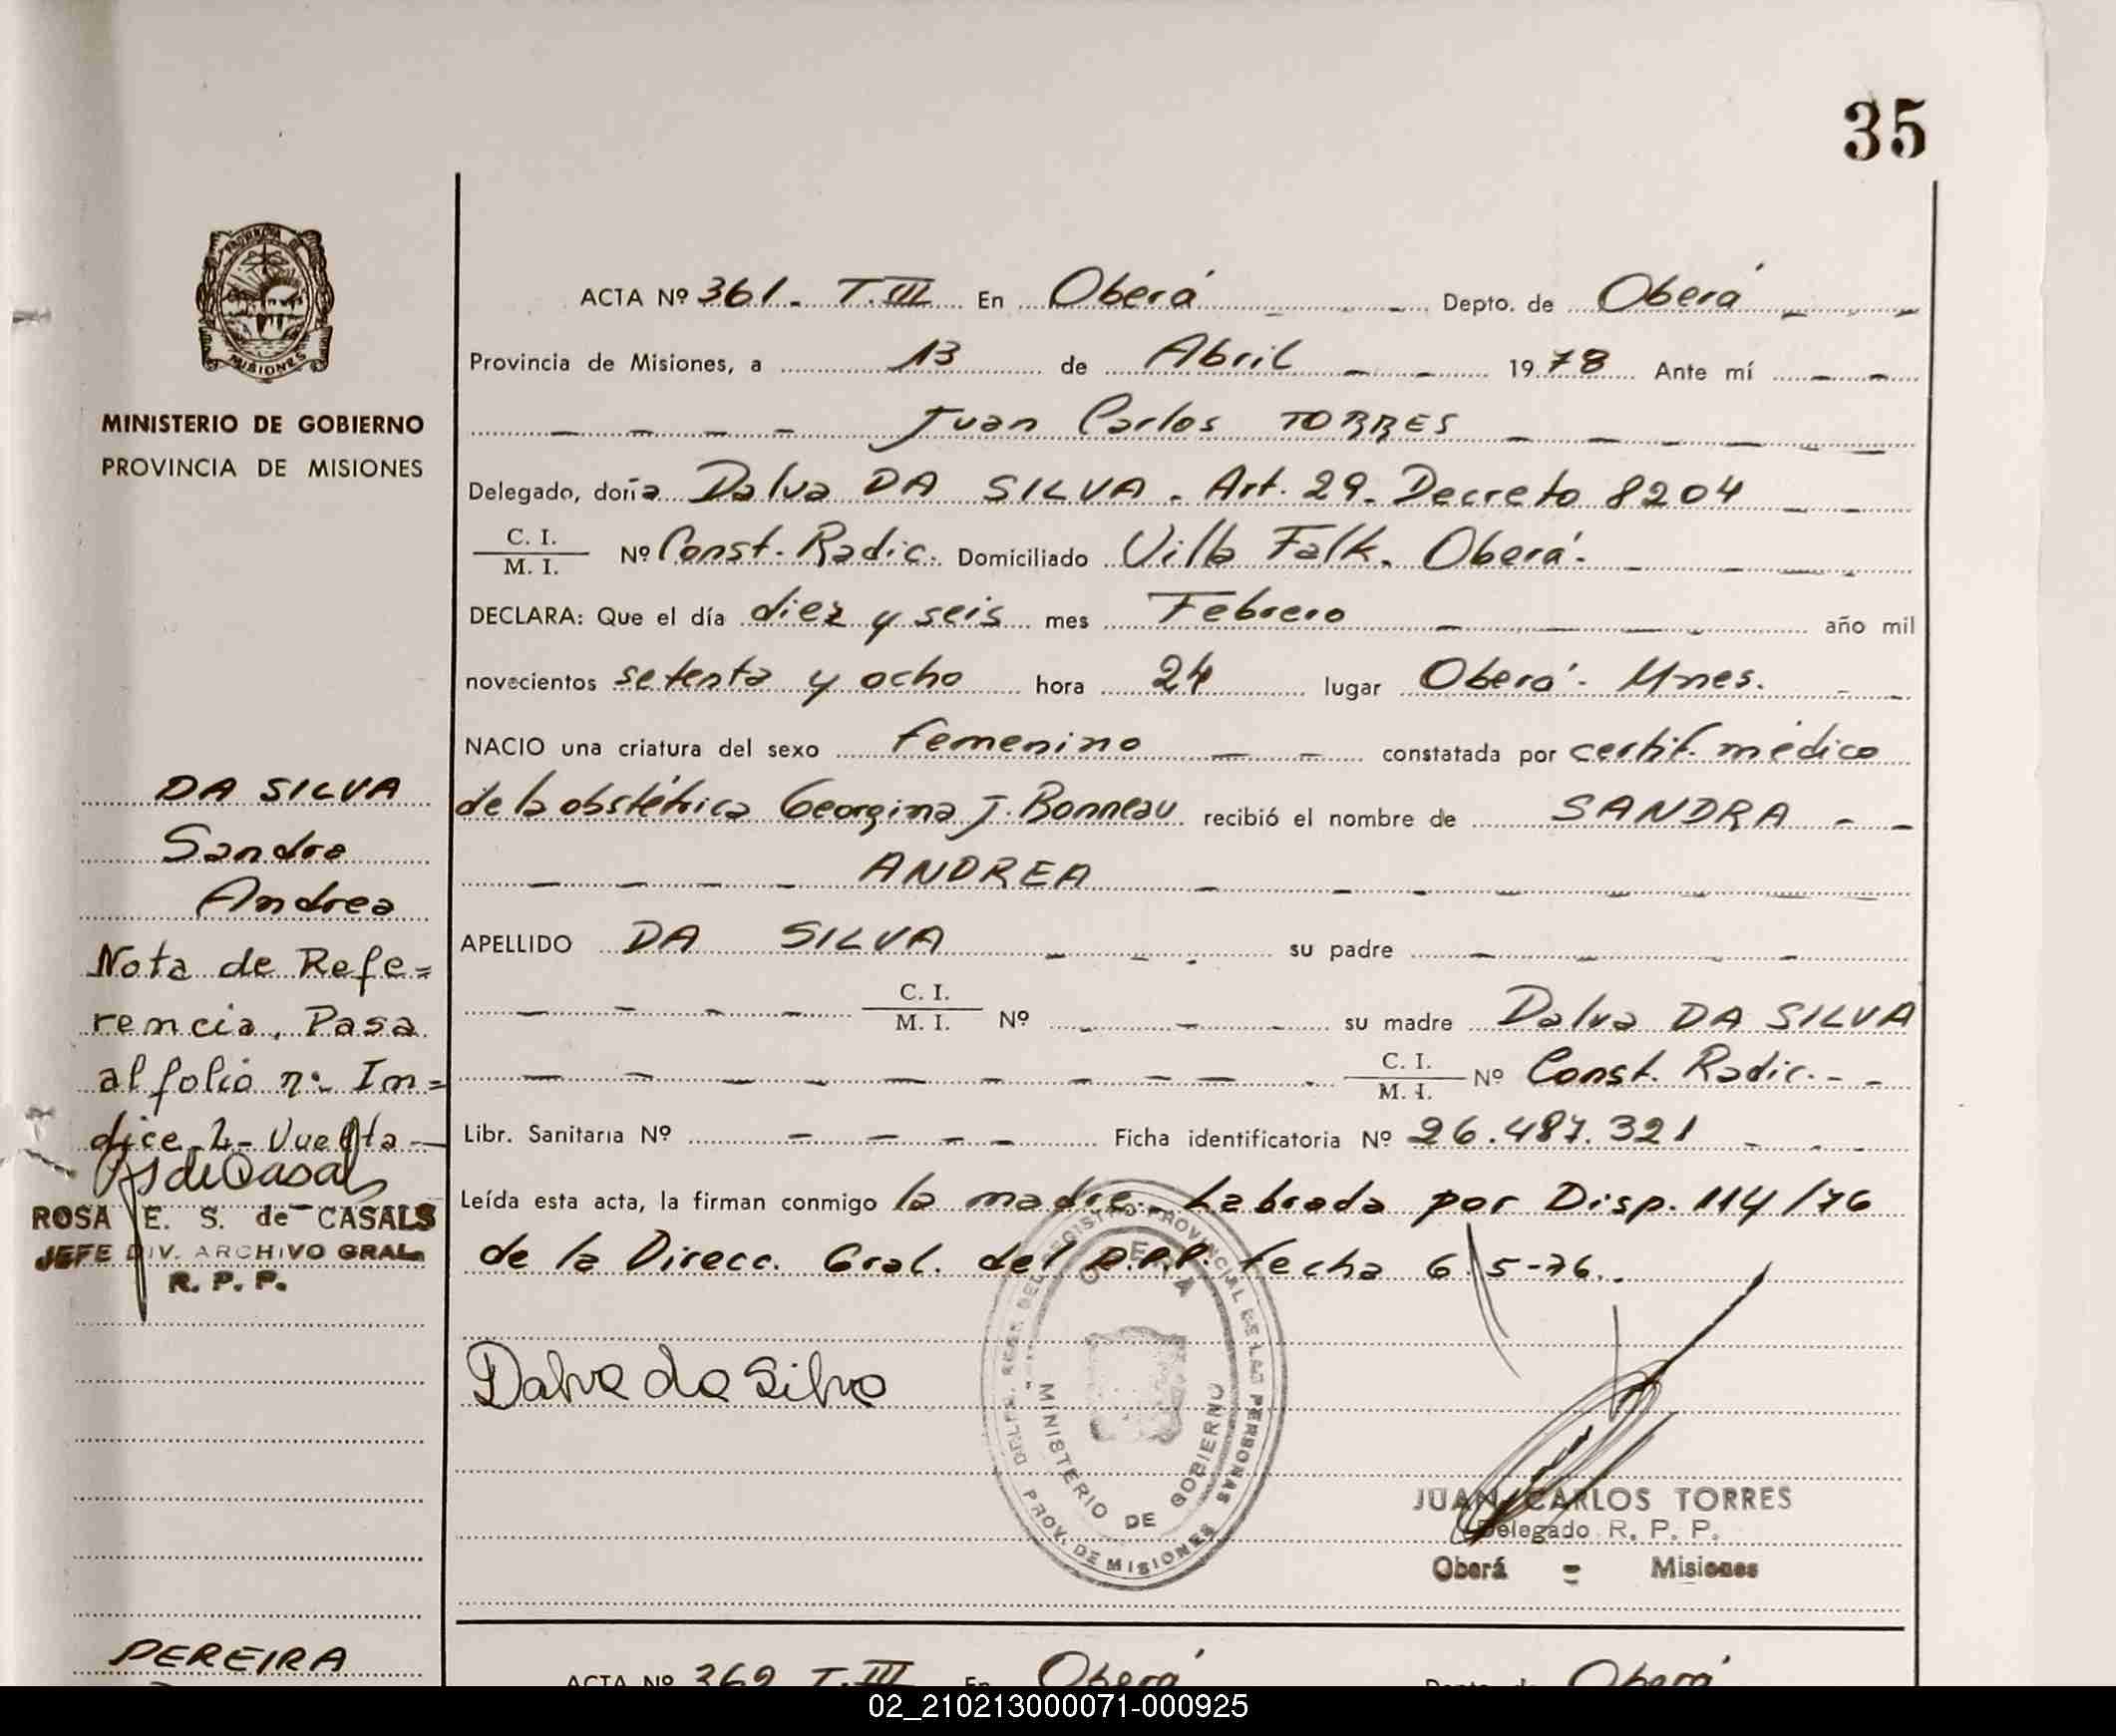 35
PROVINCIA DE
MISIONES
MINISTERIO DE GOBIERNO
PROVINCIA DE MISIONES
ACTA Nº 361. T.III En Oberá Depto. de Oberá
Provincia de Misiones, a 13 de Abril 1978 Ante mí
Juan Carlos TORRES
Delegado, doña Dalva DA SILVA. Art. 29. Decreto 8204
C. I.
M. I. Nº Const. Radic. Domiciliado Villa Falk. Oberá.
DECLARA: Que el día diez y seis mes Febrero año mil
novecientos setenta y ocho hora 24 lugar Oberá. Mnes.
NACIO una criatura del sexo femenino constatada por certif. médico
de la obstétrica Georgina J. Bonneau recibió el nombre de SANDRA
ANDREA
APELLIDO DA SILVA su padre
C. I.
M. I. Nº su madre Dalva DA SILVA
C. I.
M. I. Nº Const. Radic.
Libr. Sanitaria Nº Ficha identificatoria Nº 26.487.321
Leída esta acta, la firman conmigo la madre. Labrada por Disp. 114/76
de la Direcc. Gral. del R.P.P. fecha 6-5-76.
Dalva da Silva
DELEG. REGL. DEL REGISTRO PROVINCIAL DE LAS PERSONAS
OBERA
MINISTERIO DE GOBIERNO
PROV. DE MISIONES
JUAN CARLOS TORRES
Delegado R. P. P.
Oberá - Misiones
DA SILVA
Sandra
Andrea
Nota de Refe=
rencia. Pasa
al folio nº In=
dice 2- Vuelta
RS de Casals
ROSA E. S. de CASALS
JEFE DIV. ARCHIVO GRAL.
R. P. P.
PEREIRA
ACTA Nº 362 T.III En Oberá Depto. de Oberá
02_210213000071-000925